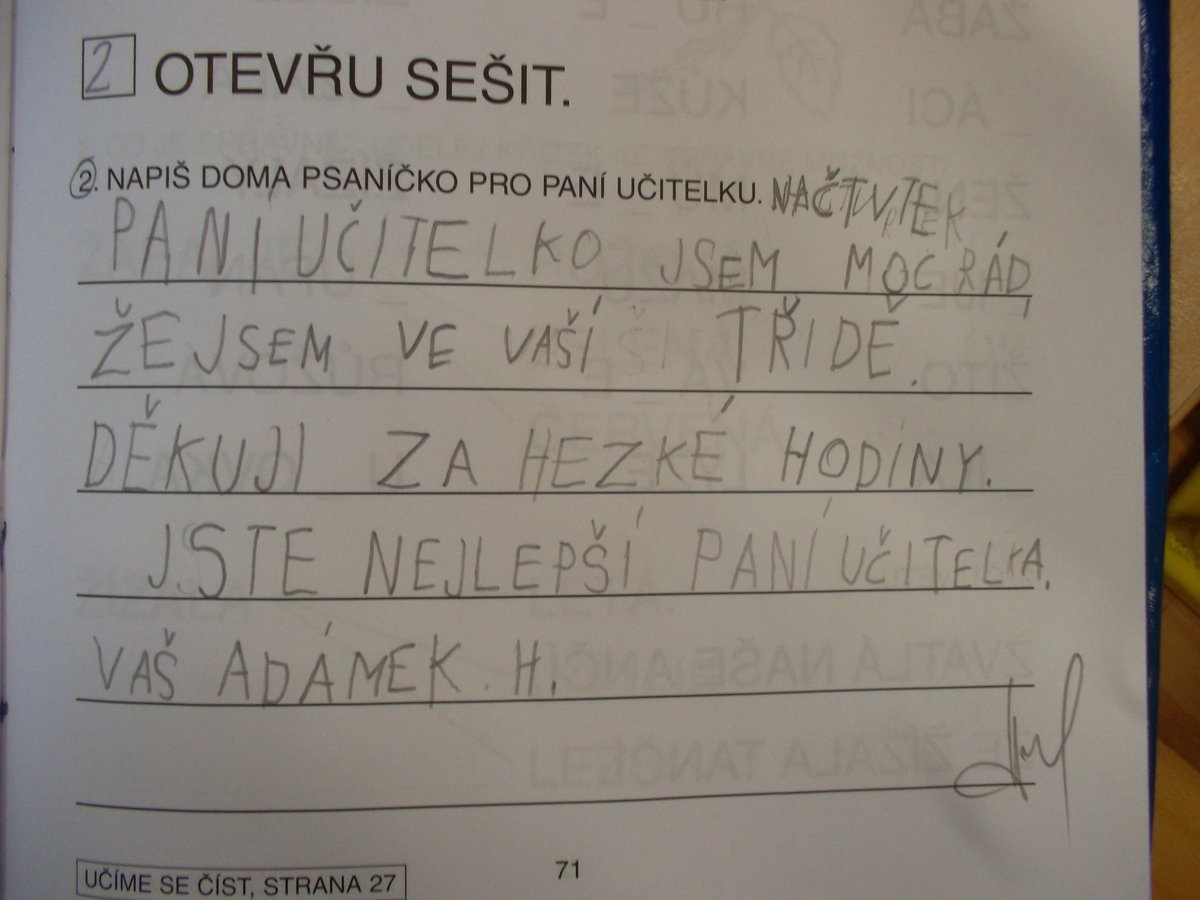 2 OTEVŘU SEŠIT.
2. NAPIŠ DOMA PSANÍČKO PRO PANÍ UČITELKU. NA ČTVRTEK
PANÍ UČITELKO JSEM MOC RÁD,
ŽE JSEM VE VAŠÍ TŘIDĚ.
DĚKUJI ZA HEZKÉ HODINY.
JSTE NEJLEPŠÍ PANÍ UČITELKA.
VAŠ ADÁMEK. H.
UČÍME SE ČÍST, STRANA 27
71